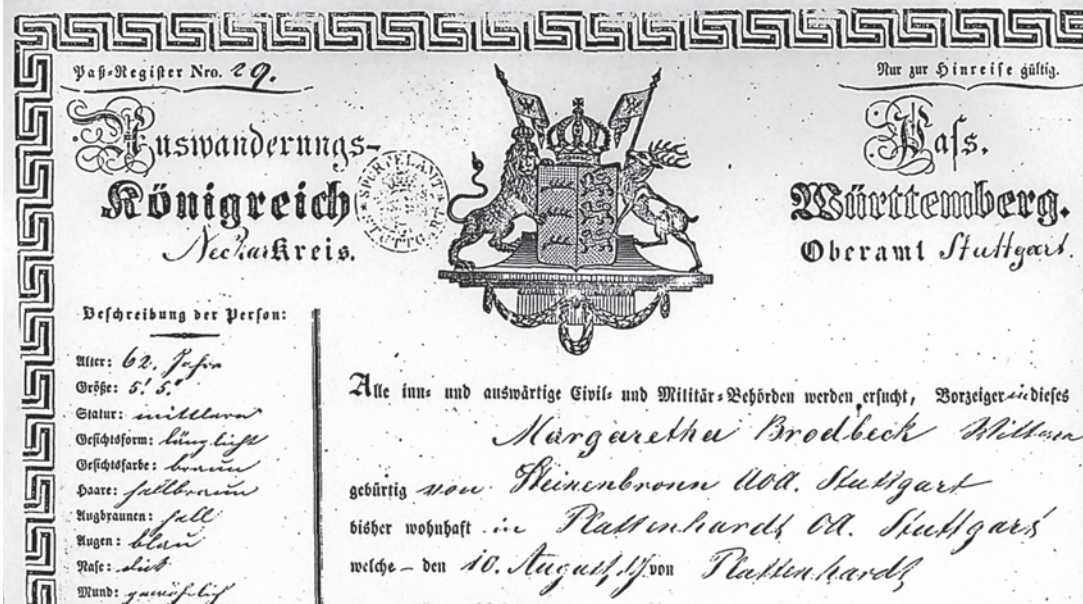 Paß-Register Nro. 29.
Nur zur Hinreise gültig.
Auswanderungs-Pass.
Königreich Württemberg.
Neckarkreis. Oberamt Stuttgart.
SPORTELAMT STUTTG.
Beschreibung der Person:
Alter: 62. Jahre
Größe: 5' 5"
Statur: mittlere
Gesichtsform: länglicht
Gesichtsfarbe: braun
Haare: hellbraun
Augbraunen: hell
Augen: blau
Nase: dick
Mund: gewöhnlich
Alle inn- und auswärtige Civil- und Militär-Behörden werden ersucht, Vorzeigerin dieses
Margaretha Brodbeck
gebürtig von Steinenbronn AOA. Stuttgart
bisher wohnhaft in Plattenhardt OA. Stuttgart
welche den 10. August von Plattenhardt